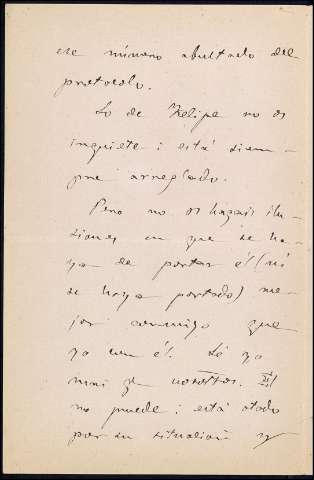 ese número abultado del
protocolo.
Lo de Felipe no os
inquiete: está siem-
pre arreglado.
Pero no os hagáis ilu-
siones en que se ha-
ya de portar él (ni
se haya portado) me-
jor conmigo que
yo con él. Lo
mas nosotros. El
no puede: está atado
por su situación y